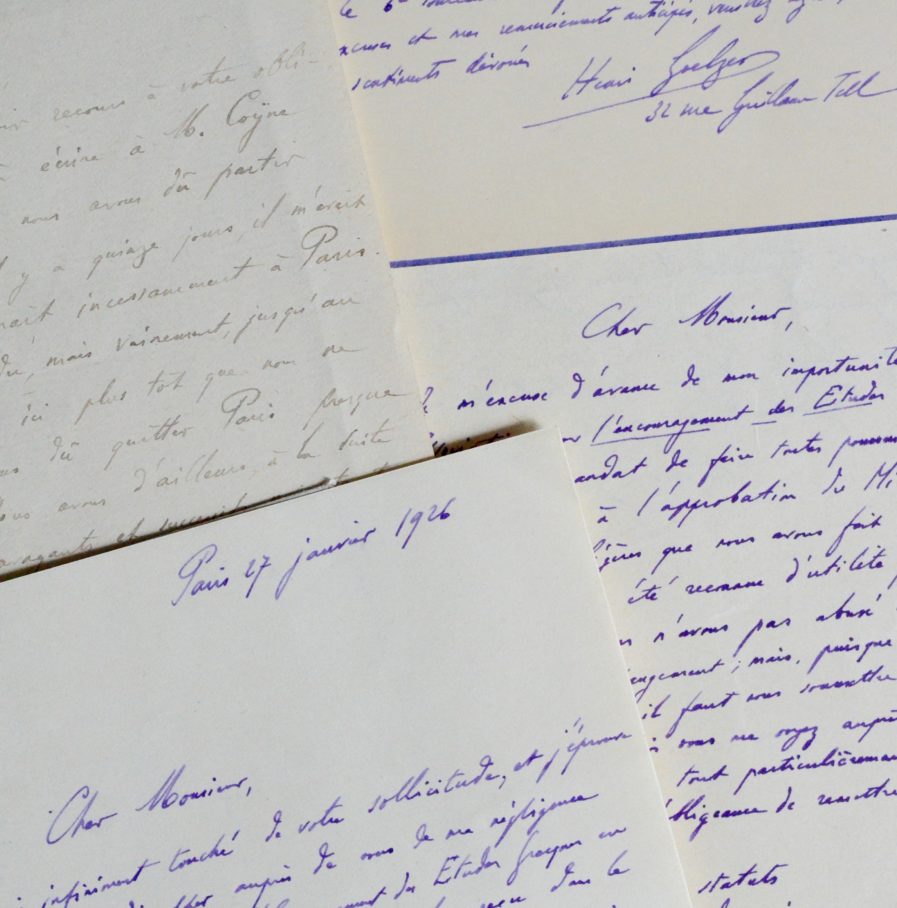 recours à votre obli-
écrire à M. Coÿne
nous avons dû partir
y a quinze jours, il m'avait
incessamment à Paris.
mais vainement, jusqu'au
ici plus tôt que nous ne
dû quitter Paris presque
avons d'ailleurs, à la suite
et
le 6e
et mes remerciements anticipés, veuillez
sentiments dévoués
Henri Goelzer
32 rue Guillaume Tell
Cher Monsieur,
m'excuse d'avance de mon importunité
l'encouragement des Etudes
de faire toutes
à l'approbation du Mi
que nous avons fait
été reconnue d'utilité
n'avons pas abusé
; mais, puisque
il faut nous soumettre
vous ne voyez
tout particulièrement
de remettre
statuts
Paris 27 janvier 1926
Cher Monsieur,
infiniment touché de votre sollicitude, et j'éprouve
auprès de vous de ma négligence
des Etudes Grecques en
dans le